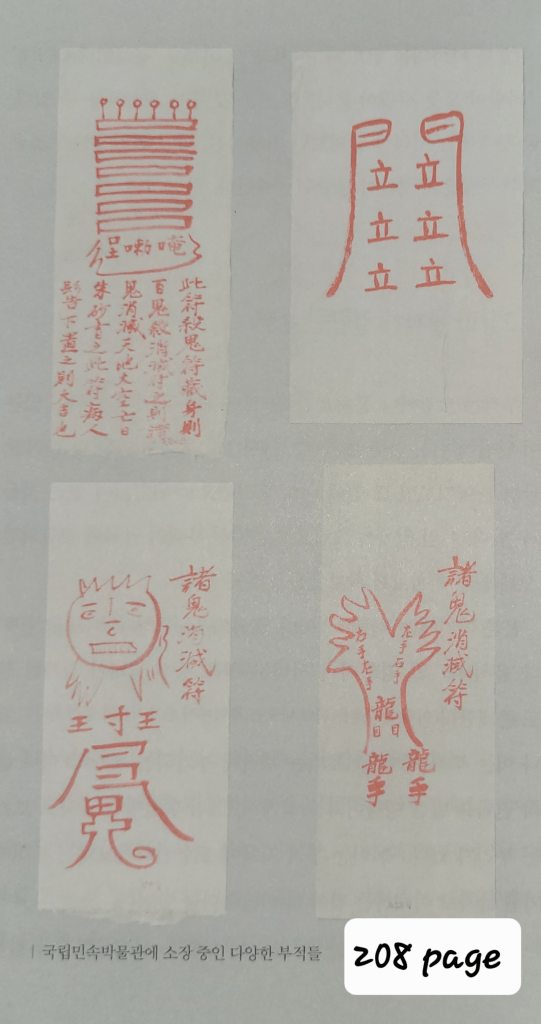 唵㘄呈
此符殺鬼符藏身則
百鬼殺消滅符之則諸
鬼消滅天地大空亡日
朱砂書之此符病人
之則大吉也
立 立
立 立
立 立
諸鬼消滅符
王 寸 王
鬼
諸鬼消滅符
右手左手
左手右手
龍
目 目
龍手
龍手
국립민속박물관에 소장 중인 다양한 부적들
208 page